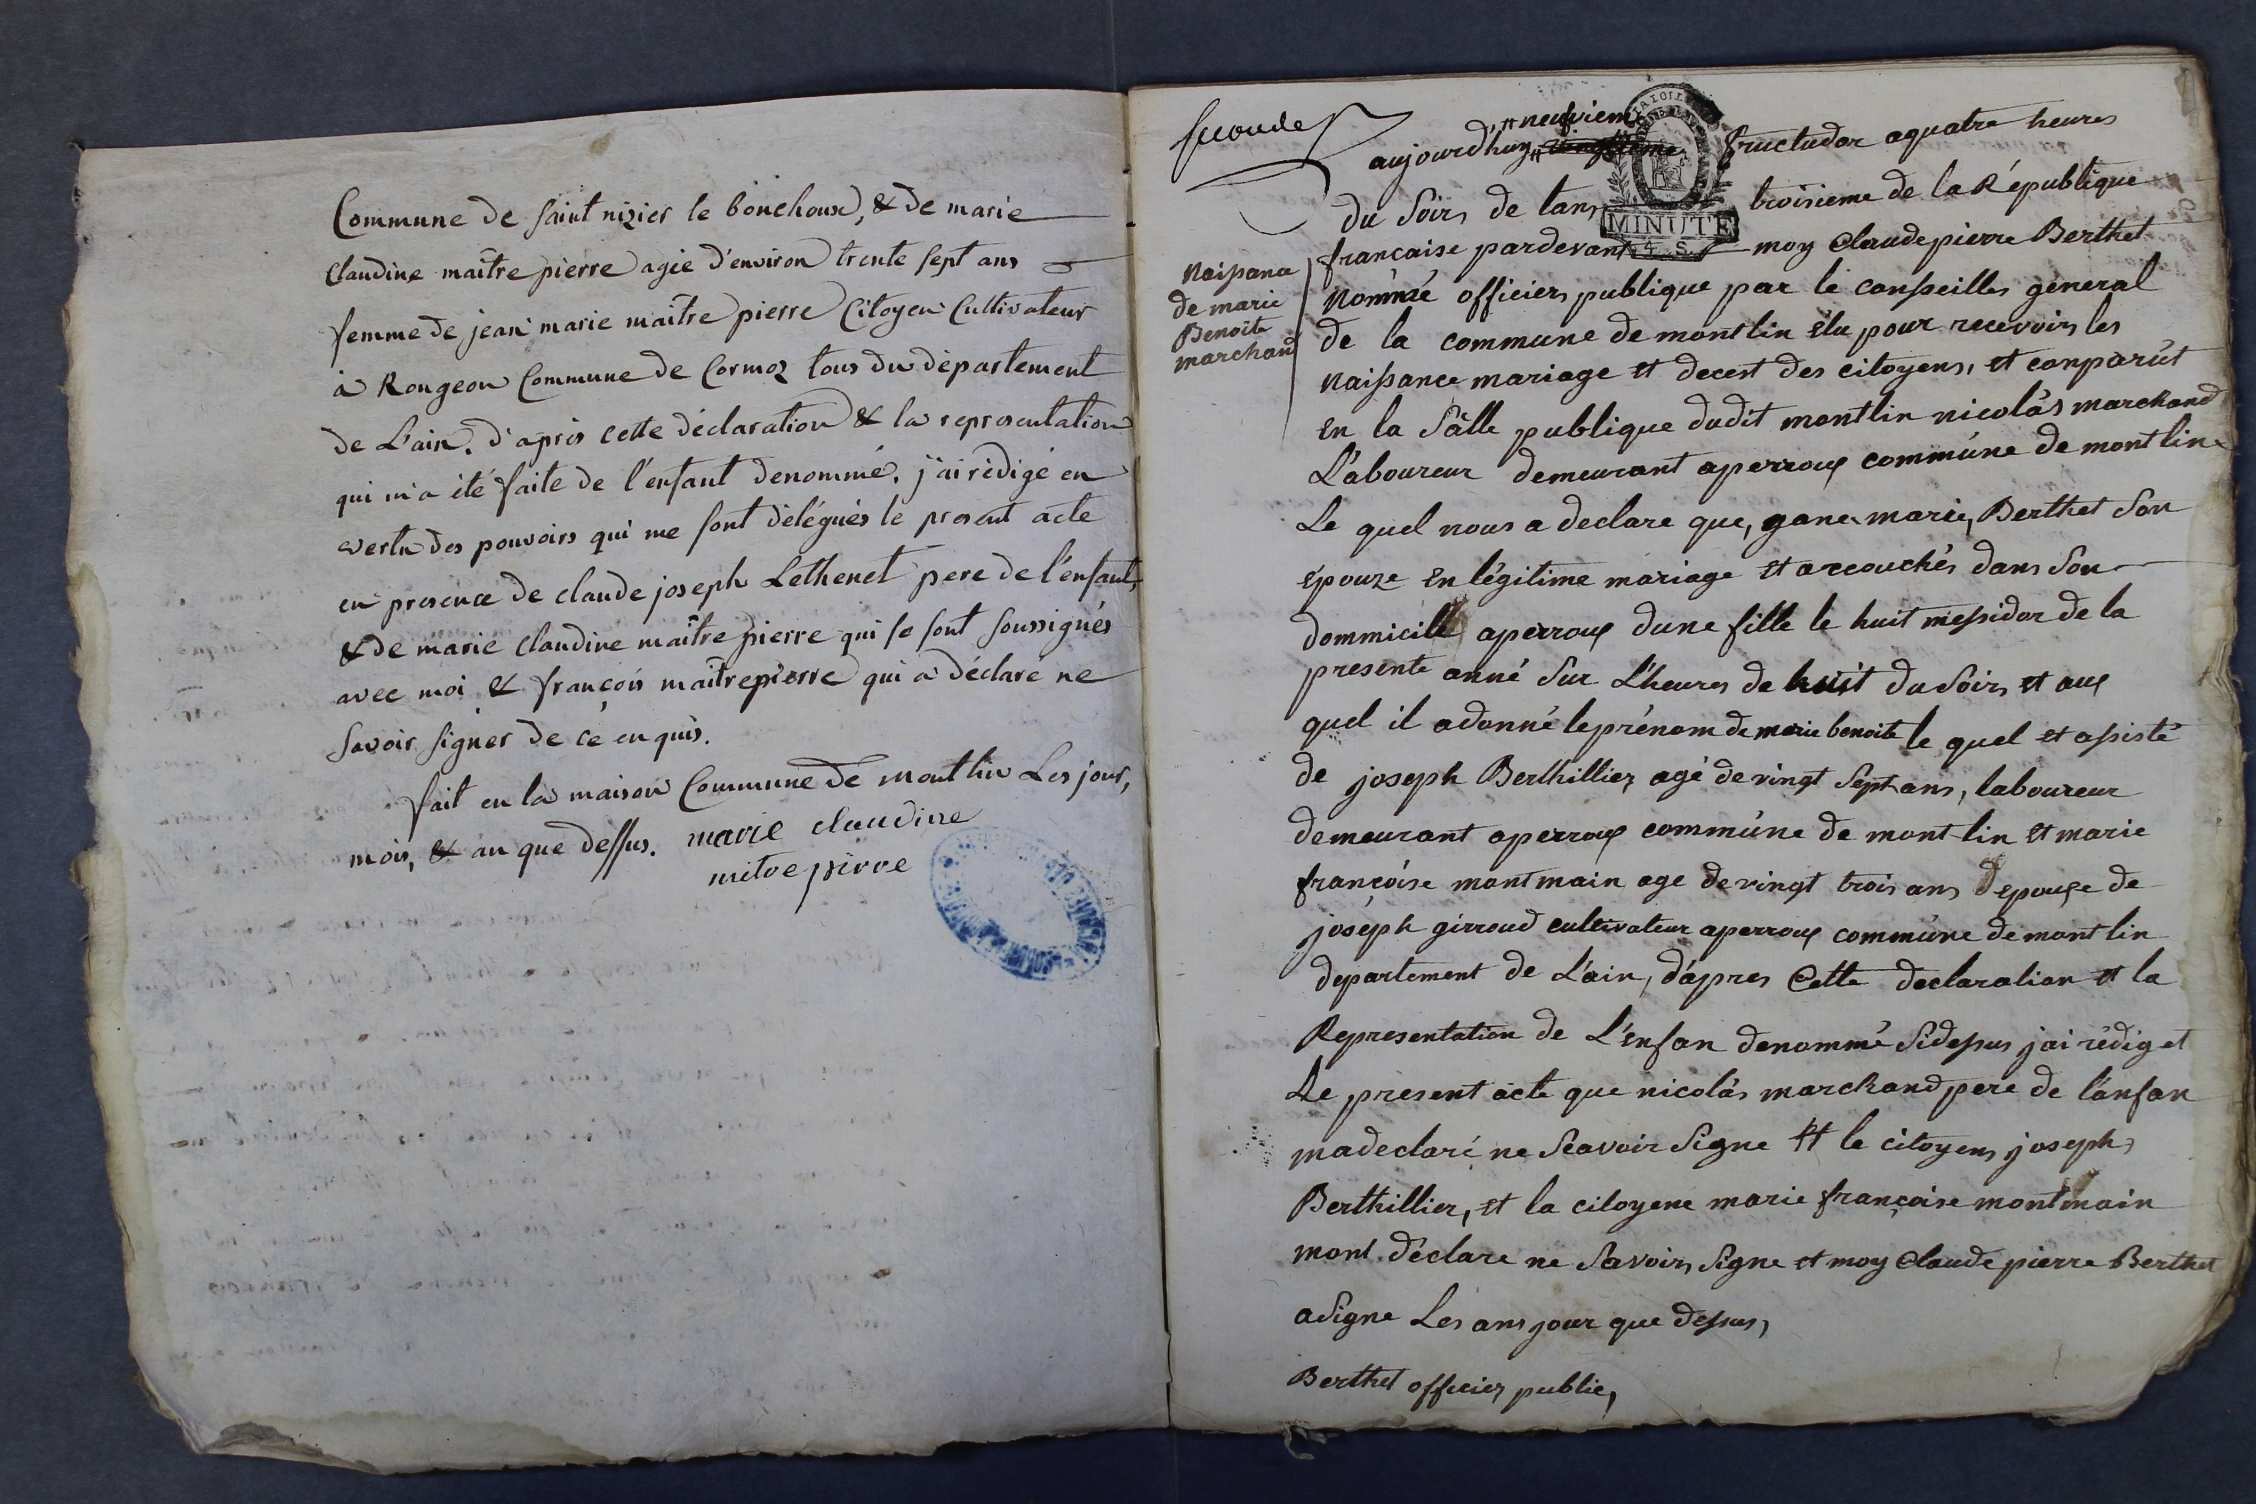 Commune de saint nizier le bouchoux, & de marie
Claudine maître pierre agée d'environ trente sept ans
femme de jean marie maître pierre Citoyen Cultivateur
à Rougeon Commune de Cormoz tous du département
de L'ain. d'après cette déclaration & la representation
qui m'a été faite de l'enfant denommé. j'ai rédigé en
vertu des pouvoirs qui me sont délégués le present acte
en presence de claude joseph Lethenet pere de l'enfant,
& de marie claudine maître pierre qui se sont soussignés
avec moi & françois maitrepierre qui a déclaré ne
savoir signer de ce enquis.
fait en la maison Commune de montlin Les jour,
mois, & an que dessus. marie claudine
mitre pirre
seconde
aujourd'huy neufvieme fructudor aquatre heures
du soirs de lans troisieme de la République
MINUTE
4. S.
francaise pardevant moy Claude pierre Berthet
Naissance
de marie
Benoite
marchand
nommé officiers publique par le consseilles general
de la commune de montlin élu pour recevoirs les
naissance mariage et decest des citoyens, et conparût
en la sâlle publique dudit montlin nicolâs marchand
L'aboureur demeurant aperroux commúne de montlin
Le quel nous a declare que, gane marie, Berthet son
épouze en légitime mariage et accouchés dans son
dommicille aperroux dune fille le huit messidor de la
presente anné sur L'heures de huit du soirs et aux
quel il adonné leprénom de marie benoite le quel et assisté
de joseph Berthillier, agé de vingt sept ans, laboureur
demeurant aperroux commúne de mont lin et marie
françóise montmain age de vingt trois ans d'epouse de
joséph girroud cultivateur aperroux commúne de montlin
departement de L'ain, d'apres Cette declaration et la
Representation de L'enfan denommé sidessus jai rédiget
Le present acte que nicolás marchand pere de l'anfan
madeclaré ne seavoir signe et le citoyens joseph
Berthillier, et la citoyene marie françoise montmain
mont déclare ne savoirs signe et moy Claude pierre Berthet
asigne Les ans jour que dessus,
Berthet officier public,